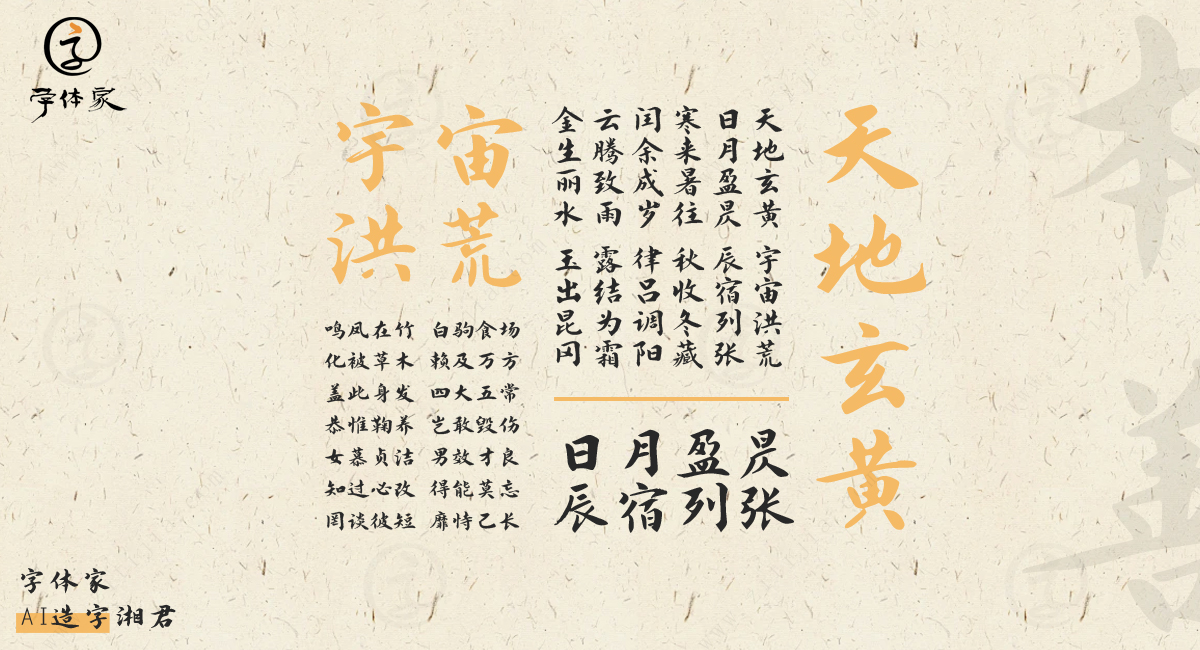 字
字体家
天地玄黄
宇宙
洪荒
天地玄黄 宇宙洪荒
日月盈昃 辰宿列张
寒来暑往 秋收冬藏
闰余成岁 律吕调阳
云腾致雨 露结为霜
金生丽水 玉出昆冈
日月盈昃
辰宿列张
鸣凤在竹 白驹食场
化被草木 赖及万方
盖此身发 四大五常
恭惟鞠养 岂敢毁伤
女慕贞洁 男效才良
知过必改 得能莫忘
罔谈彼短 靡恃己长
本善
字体家
AI造字湘君